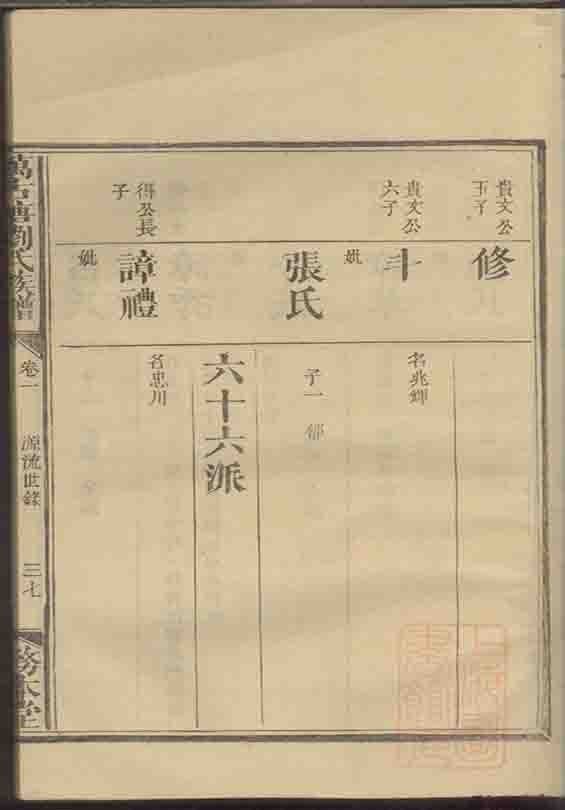 貴文公
五子
修
貴文公
六子
名兆輝
妣
張氏
子一
六十六派
得公長
子
諱禮
名忠川
妣
劉氏族譜
卷一
源流世錄
三七
務本堂
上海圖
書館藏